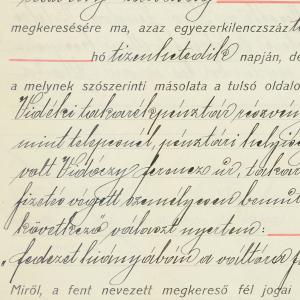 megkeresésére ma, azaz egyezerkilenczszáz
hó tizenhetedik napján, dé
a melynek szószerinti másolata a tulsó oldalo
Vidéki takarékpénztár részvén
mint telepesnél, pénztári helyisé
volt Vidóczy Ferencz úr, takar
fizetés végett személyesen bemut
következő választ nyertem:
„fedezet hiányában a váltóra f
Miről, a fent nevezett megkereső fél jogai